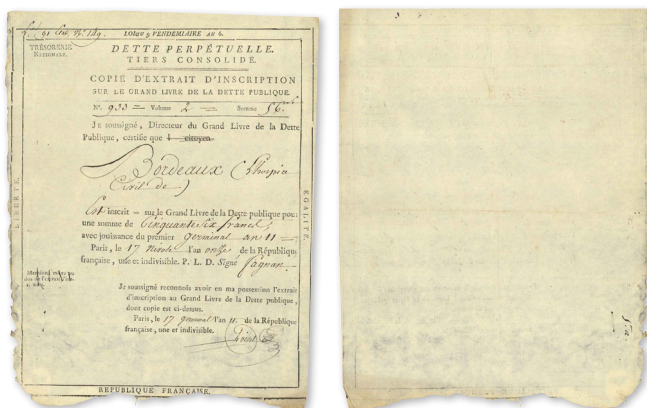 LOI du 9 VENDEMIAIRE AN 6.
TRÉSORERIE
NATIONALE.
DETTE PERPÉTUELLE.
TIERS CONSOLIDÉ.
COPIE D'EXTRAIT D'INSCRIPTION
SUR LE GRAND LIVRE DE LA DETTE PUBLIQUE.
N.º 933 = Volume 2 = Somme 56
Je soussigné, Directeur du Grand Livre de la Dette
Publique, certifie que l citoyen
Bordeaux (L'hospice
Civil de)
Est inscrit = sur le Grand Livre de la Dette publique pour
une somme de Cinquante Six francs,
avec jouissance du premier germinal an 11 =
Paris, le 17 nivôse l'an onze de la République
française, une et indivisible. P. L. D. Signé Sagnan.
Je soussigné reconnois avoir en ma possession l'extrait
d'inscription au Grand Livre de la Dette publique,
dont copie est ci-dessus.
Paris, le 17 germinal l'an 11 de la République
française, une et indivisible.
LIBERTÉ.
ÉGALITÉ.
RÉPUBLIQUE FRANÇAISE.